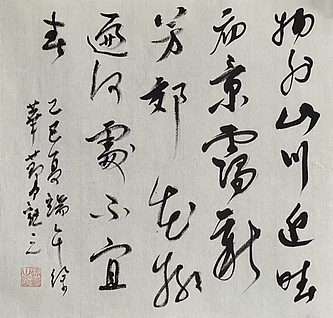 物外山川近晴
初景靄新
芳郊花柳
遍何處不宜
春
乙巳夏端午徐
華